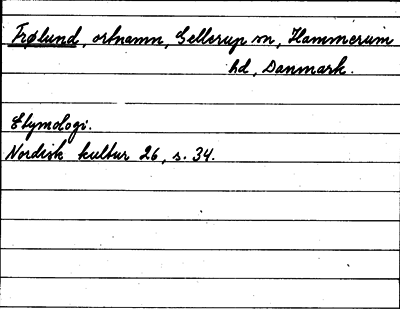 Frølund, ortnamn, Gellerup sn, Hammerum
hd, Danmark.
Etymologi.
Nordisk kultur 26, s. 34.